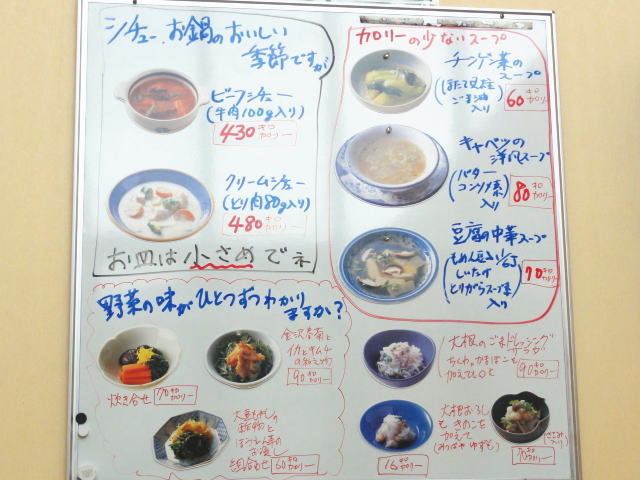 シチュー、お鍋のおいしい
季節ですが
ビーフシチュー
(牛肉100g入り)
430キロカロリー
クリームシチュー
(とり肉80g入り)
480キロカロリー
お皿は小さめでネ
カロリーの少ないスープ
チンゲン菜の
スープ
(ほたて貝柱
ごま油
入り)
60キロカロリー
キャベツの
洋風スープ
(バター
コンソメ素
入り)
80キロカロリー
豆腐の中華スープ
(もめん豆腐1/6丁
しいたけ
とりがらスープ素
入り)
70キロカロリー
野菜の味がひとつずつわかり
ますか?
炊き合せ
70キロカロリー
金沢春菊と
イカとキムチ
の和えもの
90キロカロリー
大豆もやしの
酢物と
ほうれん草の
お浸し
組合せ
60キロカロリー
大根のごまドレッシング
サラダ
ちくわ、かまぼこも
加えて
90キロカロリー
大根おろし
も きのこを
加えて
(みつば ゆずも)
16キロカロリー
(ささみ入り)
70キロカロリー